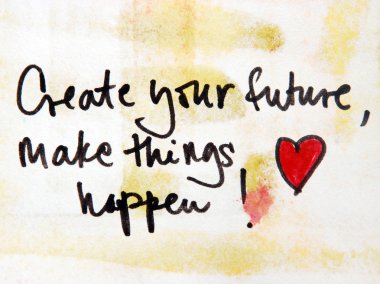 Create your future,
make things
happen!